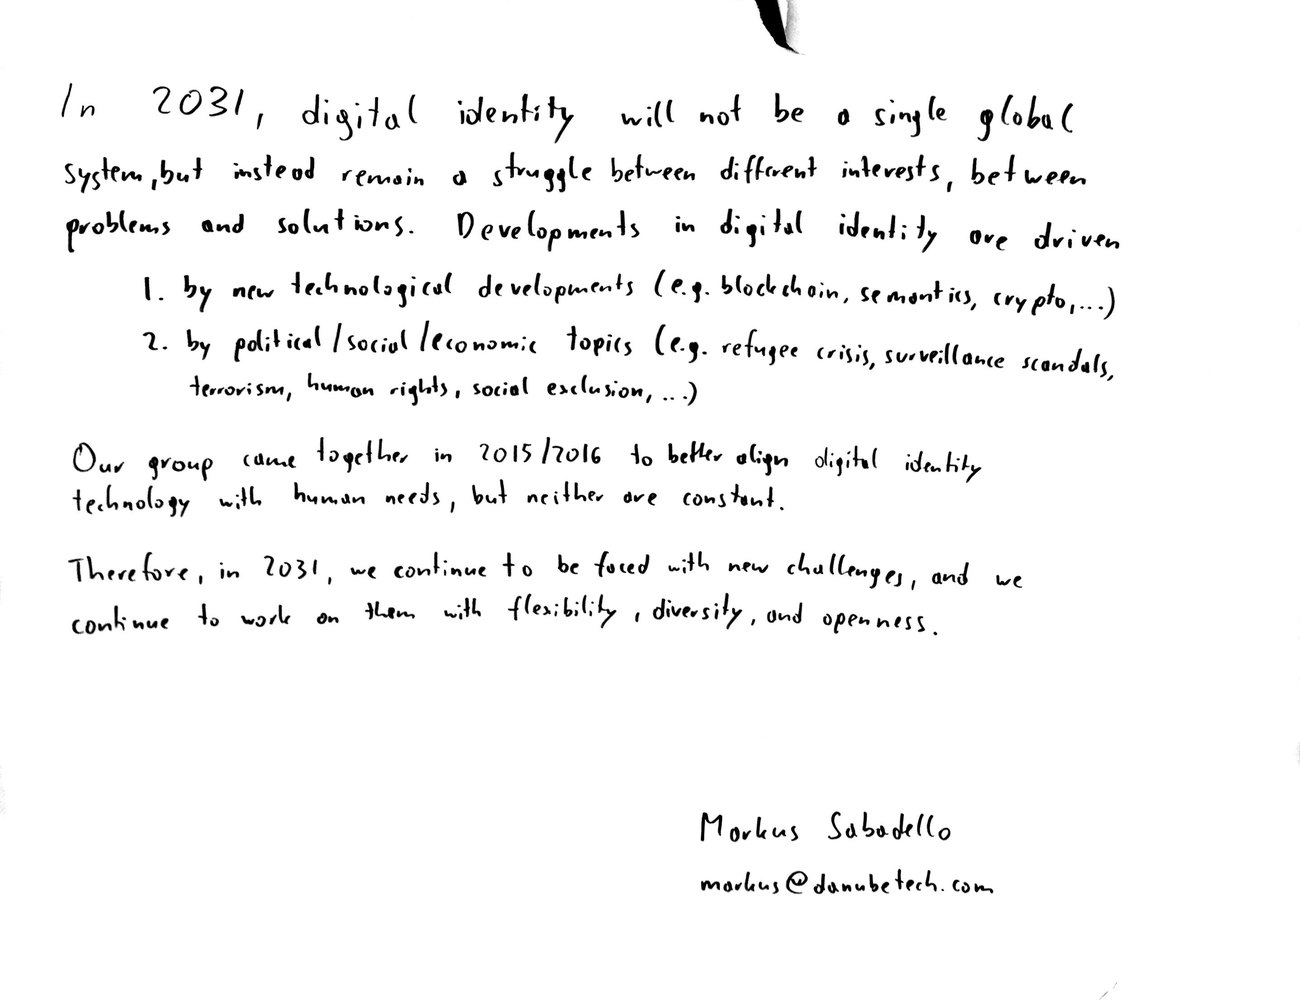 In 2031, digital identity will not be a single global
system, but instead remain a struggle between different interests, between
problems and solutions. Developments in digital identity are driven
1. by new technological developments (e.g. blockchain, semantics, crypto,...)
2. by political/social/economic topics (e.g. refugee crisis, surveillance scandals,
terrorism, human rights, social exclusion, ...)
Our group came together in 2015/2016 to better align digital identity
technology with human needs, but neither are constant.
Therefore, in 2031, we continue to be faced with new challenges, and we
continue to work on them with flexibility, diversity, and openness.
Markus Sabadello
markus@danubetech.com